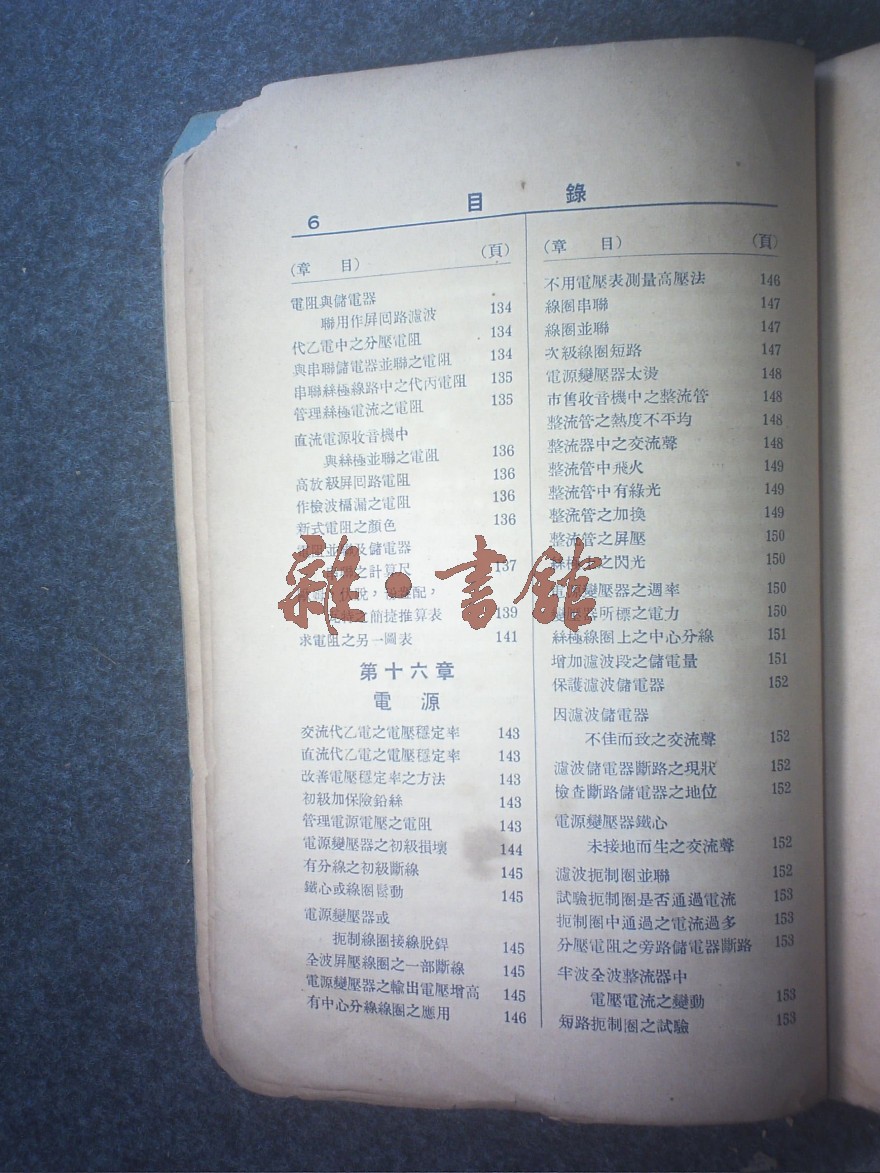 6
目 錄
(章 目) (頁)
電阻與儲電器
聯用作屏回路濾波 134
代乙電中之分壓電阻 134
與串聯儲電器並聯之電阻 134
串聯絲極線路中之代丙電阻 135
管理絲極電流之電阻 135
直流電源收音機中
與絲極並聯之電阻 136
高放級屏回路電阻 136
作檢波檽漏之電阻 136
新式電阻之顏色 136
及儲電器
之計算尺 137
之簡捷推算表 139
求電阻之另一圖表 141
第十六章
電 源
交流代乙電之電壓穩定率 143
直流代乙電之電壓穩定率 143
改善電壓穩定率之方法 143
初級加保險鉛絲 143
管理電源電壓之電阻 143
電源變壓器之初級損壞 144
有分線之初級斷線 145
鐵心或線圈鬆動 145
電源變壓器或
扼制線圈接線脫銲 145
全波屏壓線圈之一部斷線 145
電源變壓器之輸出電壓增高 145
有中心分線線圈之應用 146
(章 目) (頁)
不用電壓表測量高壓法 146
線圈串聯 147
線圈並聯 147
次級線圈短路 147
電源變壓器太燙 148
市售收音機中之整流管 148
整流管之熱度不平均 148
整流器中之交流聲 148
整流管中飛火 149
整流管中有綠光 149
整流管之加換 149
整流管之屏壓 150
之閃光 150
電源變壓器之週率 150
變壓器所標之電力 150
絲極線圈上之中心分線 151
增加濾波段之儲電量 151
保護濾波儲電器 152
因濾波儲電器
不佳而致之交流聲 152
濾波儲電器斷路之現狀 152
檢查斷路儲電器之地位 152
電源變壓器鐵心
未接地而生之交流聲 152
濾波扼制圈並聯 152
試驗扼制圈是否通過電流 153
扼制圈中通過之電流過多 153
分壓電阻之旁路儲電器斷路 153
半波全波整流器中
電壓電流之變動 153
短路扼制圈之試驗 153
雜·書館